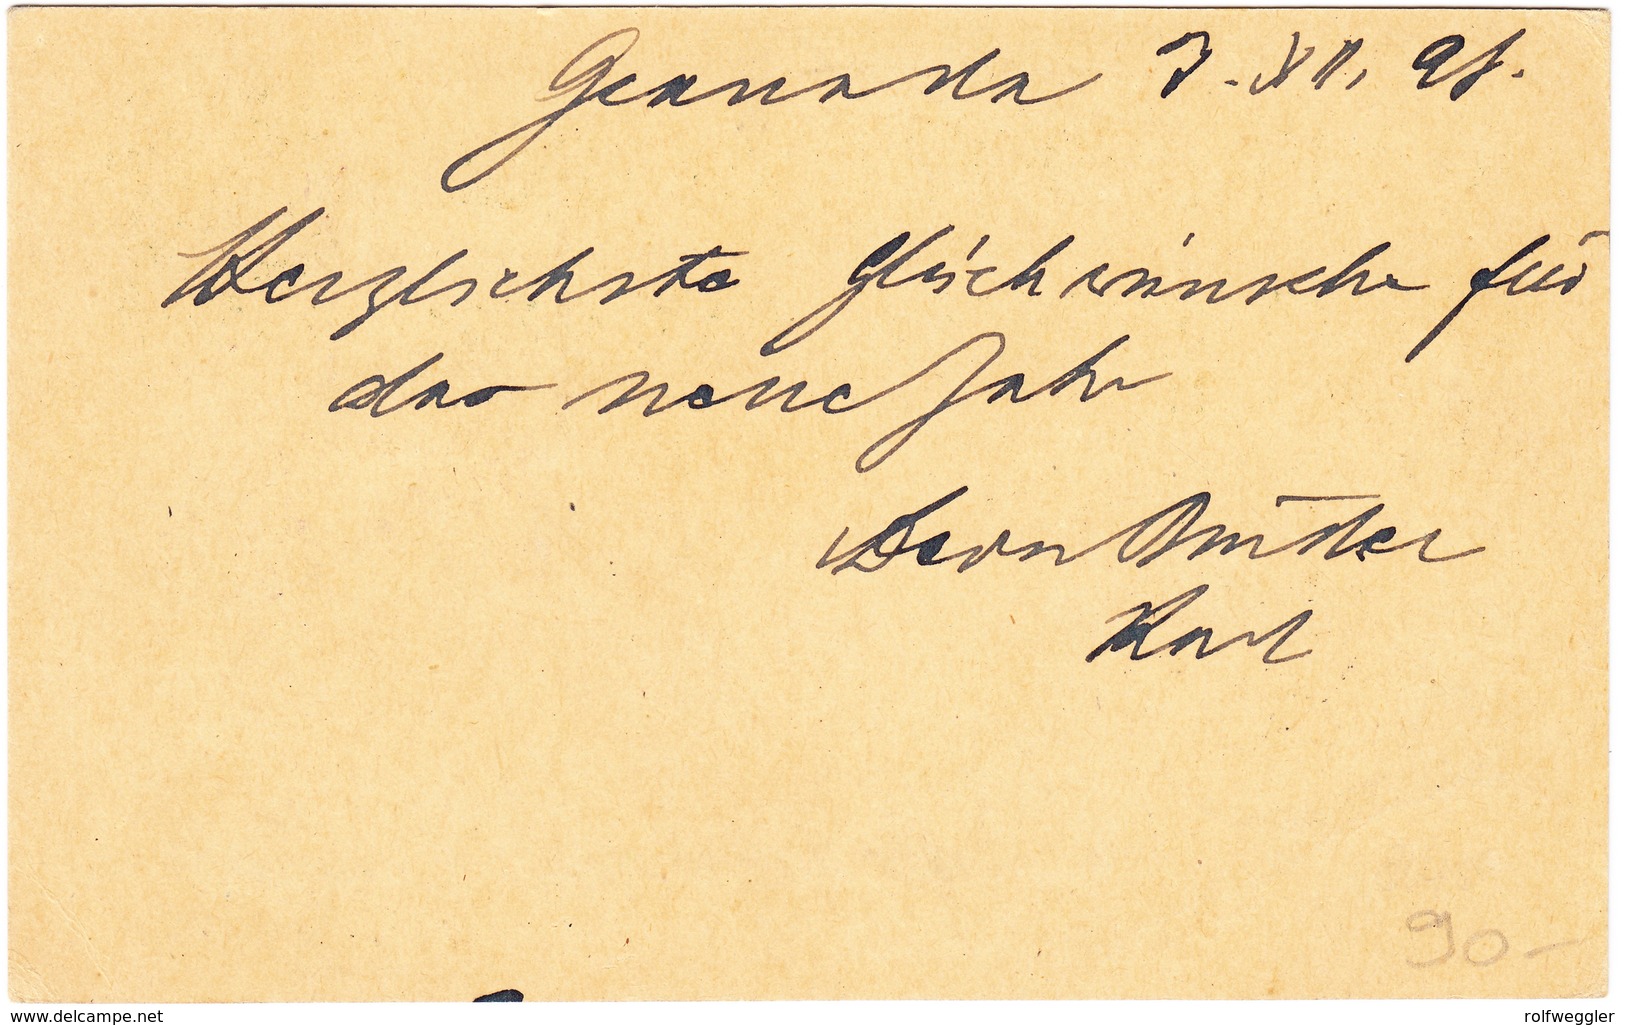 Granada 7. XII. 98.
Herzlichste Glückwünsche für
das neue Jahr
Dein Bruder
Karl
90-
www.delcampe.net
rolfweggler